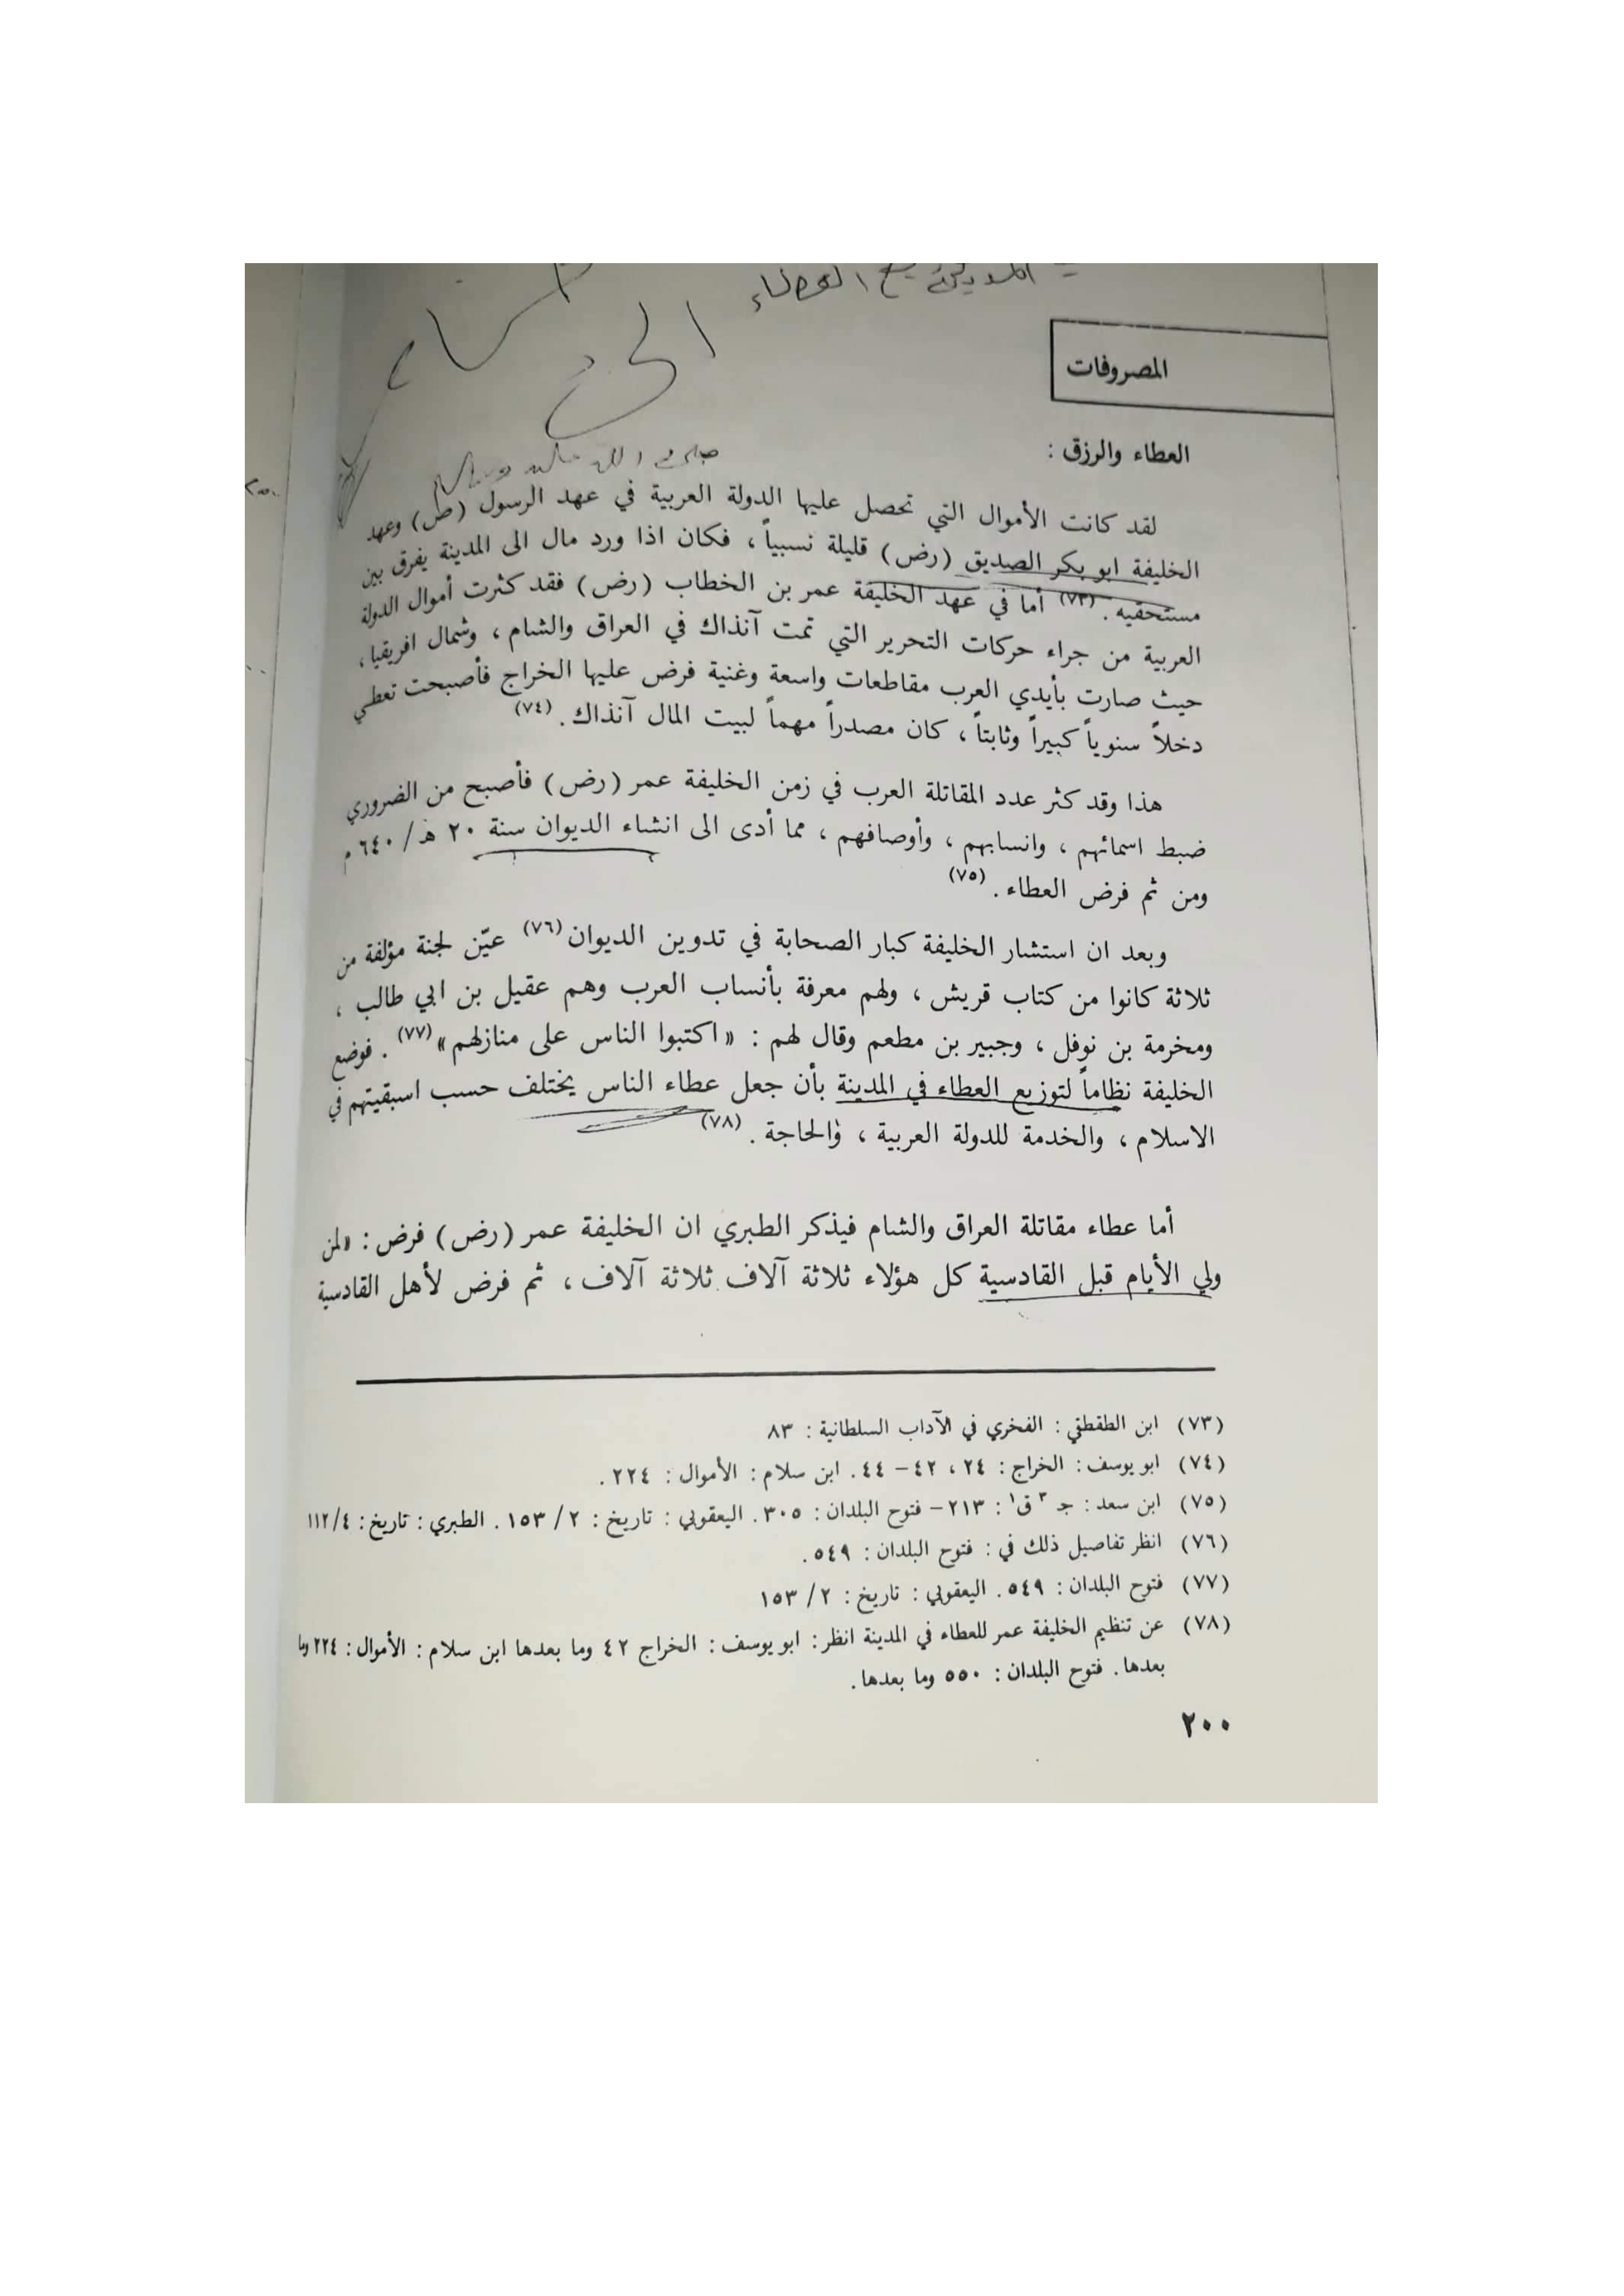 العطاء
المصروفات
العطاء والرزق :
صلى الله عليه وسلم
لقد كانت الأموال التي تحصل عليها الدولة العربية في عهد الرسول (ص) وعهد
الخليفة ابو بكر الصديق (رض) قليلة نسبياً ، فكان اذا ورد مال الى المدينة يفرق بين
مستحقيه . (٧٣) أما في عهد الخليفة عمر بن الخطاب (رض) فقد كثرت أموال الدولة
العربية من جراء حركات التحرير التي تمت آنذاك في العراق والشام ، وشمال افريقيا ،
حيث صارت بأيدي العرب مقاطعات واسعة وغنية فرض عليها الخراج فأصبحت تعطي
دخلاً سنوياً كبيراً وثابتاً ، كان مصدراً مهماً لبيت المال آنذاك . (٧٤)
هذا وقد كثر عدد المقاتلة العرب في زمن الخليفة عمر (رض) فأصبح من الضروري
ضبط اسمائهم ، وانسابهم ، وأوصافهم ، مما أدى الى انشاء الديوان سنة ٢٠ هـ / ٦٤٠ م
ومن ثم فرض العطاء . (٧٥)
وبعد ان استشار الخليفة كبار الصحابة في تدوين الديوان (٧٦) عيّن لجنة مؤلفة من
ثلاثة كانوا من كتاب قريش ، ولهم معرفة بأنساب العرب وهم عقيل بن ابي طالب ،
ومخرمة بن نوفل ، وجبير بن مطعم وقال لهم : «اكتبوا الناس على منازلهم» (٧٧) . فوضع
الخليفة نظاماً لتوزيع العطاء في المدينة بأن جعل عطاء الناس يختلف حسب اسبقيتهم في
الاسلام ، والخدمة للدولة العربية ، والحاجة . (٧٨)
أما عطاء مقاتلة العراق والشام فيذكر الطبري ان الخليفة عمر (رض) فرض : «لمن
ولي الأيام قبل القادسية كل هؤلاء ثلاثة آلاف ثلاثة آلاف ، ثم فرض لأهل القادسية
(٧٣) ابن الطقطقي : الفخري في الآداب السلطانية : ٨٣
(٧٤) ابو يوسف : الخراج : ٢٤ ، ٤٢ – ٤٤ . ابن سلام : الأموال : ٢٢٤ .
(٧٥) ابن سعد : جـ ٣ ق١ : ٢١٣ – فتوح البلدان : ٣٠٥ . اليعقوبي : تاريخ : ٢ / ١٥٣ . الطبري : تاريخ : ٤/١١٢
(٧٦) انظر تفاصيل ذلك في : فتوح البلدان : ٥٤٩ .
(٧٧) فتوح البلدان : ٥٤٩ . اليعقوبي : تاريخ : ٢ / ١٥٣
(٧٨) عن تنظيم الخليفة عمر للعطاء في المدينة انظر : ابو يوسف : الخراج ٤٢ وما بعدها ابن سلام : الأموال : ٢٢٤ وما
بعدها . فتوح البلدان : ٥٥٠ وما بعدها .
٢٠٠